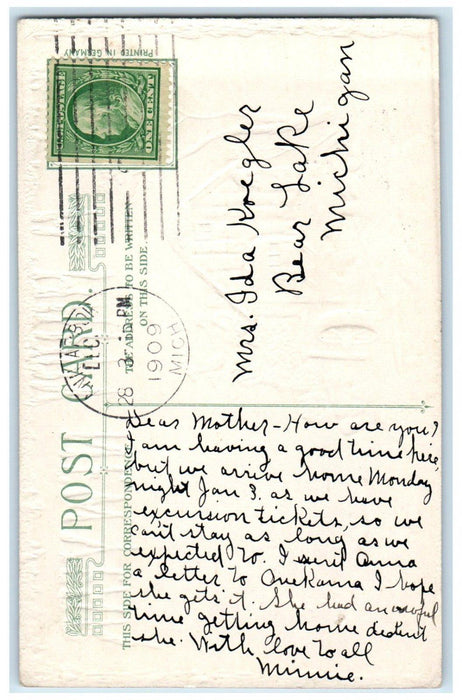 PRINTED IN GERMANY
U.S. POSTAGE
ONE CENT
POST CARD.
THE ADDRESS TO BE WRITTEN
ON THIS SIDE.
DEC
28
3 PM
1909
MICH
Mrs. Ida Koegler
Bear Lake
Michigan
THIS SIDE FOR CORRESPONDENCE
Dear Mother - How are you?
I am having a good time here,
but we arrive home Monday
night Jan 3. as we have
excursion tickets, so we
can't stay as long as we
expected to. I sent Anna
a letter to Onekama I hope
she gets it. She had an awful
time getting home didn't
she. With love to all
Minnie.